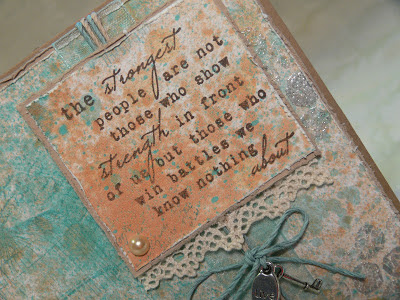 the strongest
people are not
those who show
strength in front
of us but those who
win battles we
know nothing about